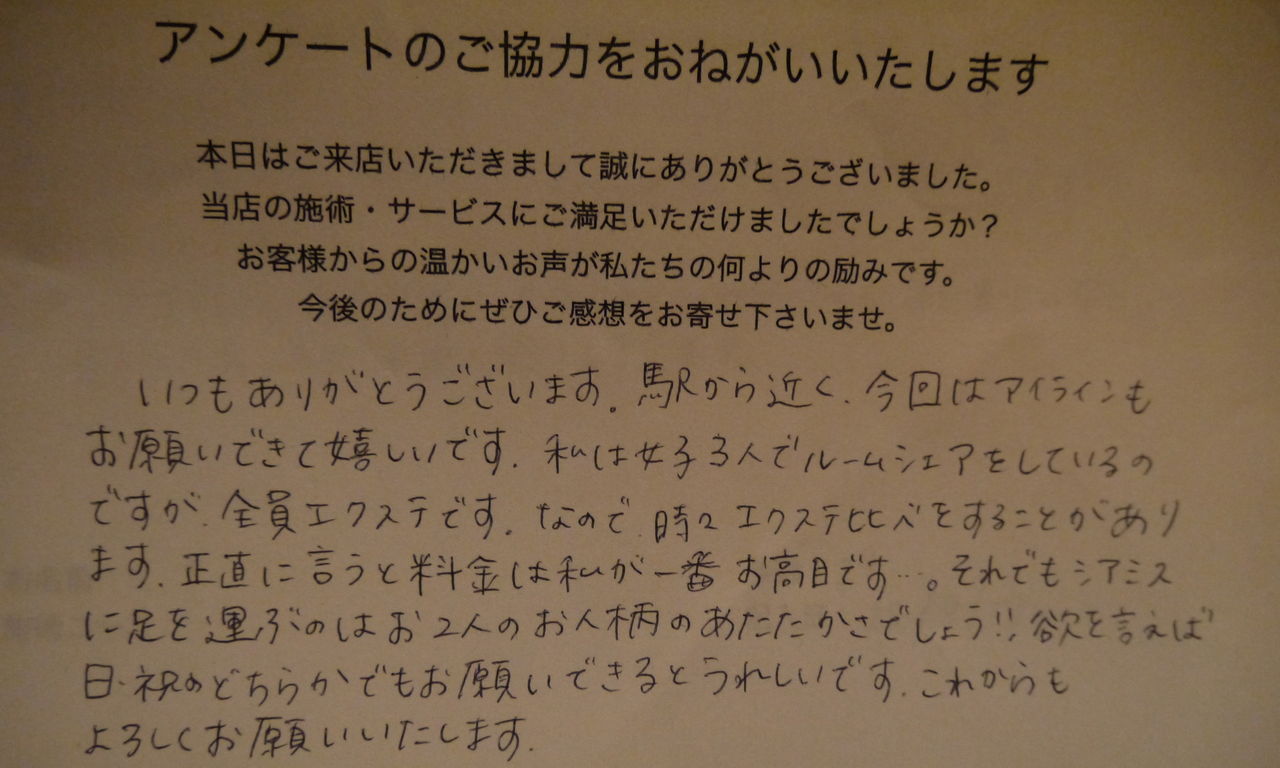 アンケートのご協力をおねがいいたします
本日はご来店いただきまして誠にありがとうございました。
当店の施術・サービスにご満足いただけましたでしょうか？
お客様からの温かいお声が私たちの何よりの励みです。
今後のためにぜひご感想をお寄せ下さいませ。
いつもありがとうございます。駅から近く、今回はアイラインも
お願いできて嬉しいです。私は女子3人でルームシェアをしているの
ですが、全員エクステです。なので、時々エクステ比べをすることがあり
ます。正直に言うと料金は私が一番お高目です…。それでもシアミス
に足を運ぶのはお2人のお人柄のあたたかさでしょう!!欲を言えば
日・祝のどちらかでもお願いできるとうれしいです。これからも
よろしくお願いいたします。